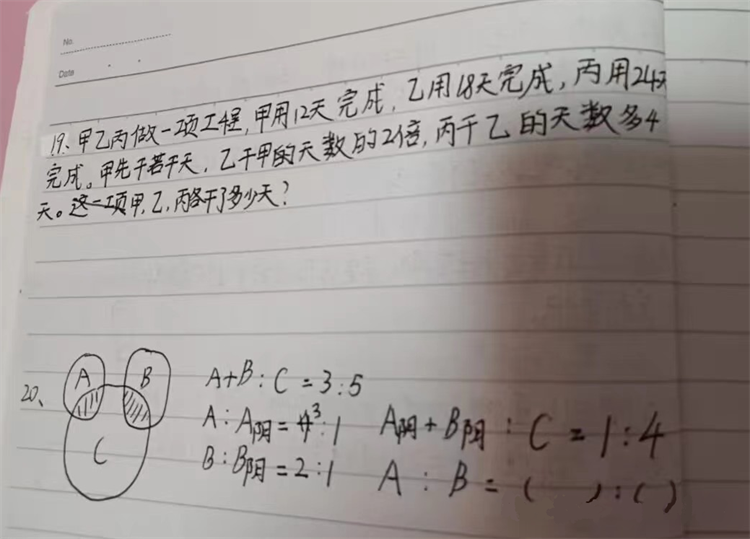 No.
Date
19、甲乙丙做一项工程,甲用12天完成,乙用18天完成,丙用24天
完成。甲先干若干天,乙干甲的天数的2倍,丙干乙的天数多4
天。这一项甲,乙,丙各干了多少天?
20、
A
B
C
A+B:C=3:5
A:A阴=3:1
A阴+B阴:C=1:4
B:B阴=2:1
A:B=( ):( )